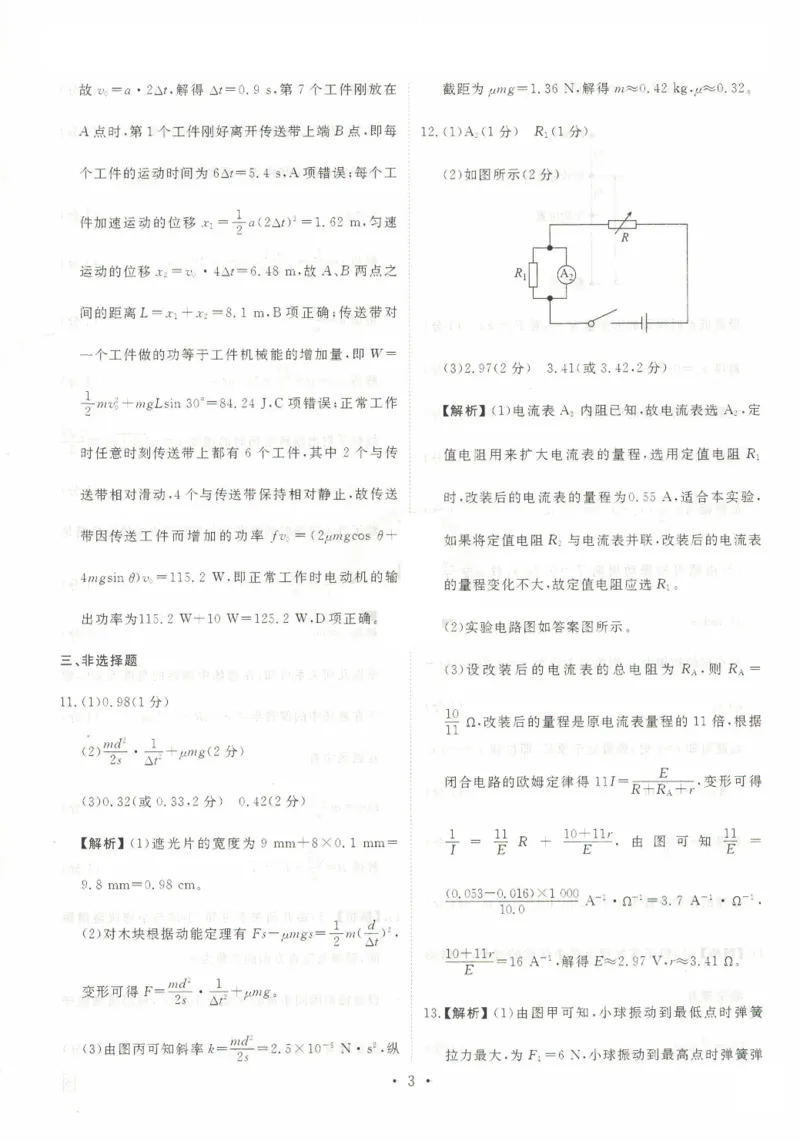 故 v₀=a・2Δt,解得 Δt=0.9 s,第 7 个工件刚放在
A 点时,第 1 个工件刚好离开传送带上端 B 点,即每
个工件的运动时间为 6Δt=5.4 s,A 项错误;每个工
件加速运动的位移 x₁=1/2 a(2Δt)²=1.62 m,匀速
运动的位移 x₂=v₀・4Δt=6.48 m,故 A、B 两点之
间的距离 L=x₁+x₂=8.1 m,B 项正确;传送带对
一个工件做的功等于工件机械能的增加量,即 W=
1/2 mv₀²+mgLsin 30°=84.24 J,C 项错误;正常工作
时任意时刻传送带上都有 6 个工件,其中 2 个与传
送带相对滑动,4 个与传送带保持相对静止,故传送
带因传送工件而增加的功率 fv₀=(2μmgcos θ+
4mgsin θ)v₀=115.2 W,即正常工作时电动机的输
出功率为115.2 W+10 W=125.2 W,D 项正确。
三、非选择题
11.(1)0.98(1 分)
(2)md²/2s・1/Δt²+μmg(2 分)
(3)0.32(或 0.33,2 分) 0.42(2 分)
【解析】(1)遮光片的宽度为 9 mm+8×0.1 mm=
9.8 mm=0.98 cm。
(2)对木块根据动能定理有 Fs-μmgs=1/2 m(d/Δt)²,
变形可得 F=md²/2s・1/Δt²+μmg。
(3)由图丙可知斜率 k=md²/2s=2.5×10⁻⁵ N・s²,纵
截距为 μmg=1.36 N,解得 m≈0.42 kg,μ≈0.32。
12.(1)A₂(1 分) R₁(1 分)
(2)如图所示(2 分)
R
R₁
A₂
(3)2.97(2 分) 3.41(或 3.42,2 分)
【解析】(1)电流表 A₂ 内阻已知,故电流表选 A₂,定
值电阻用来扩大电流表的量程,选用定值电阻 R₁
时,改装后的电流表的量程为0.55 A,适合本实验,
如果将定值电阻 R₂ 与电流表并联,改装后的电流表
的量程变化不大,故定值电阻应选 R₁。
(2)实验电路图如答案图所示。
(3)设改装后的电流表的总电阻为 R_A,则 R_A=
10/11 Ω,改装后的量程是原电流表量程的 11 倍,根据
闭合电路的欧姆定律得 11I=E/(R+R_A+r),变形可得
1/I = 11/E R + (10+11r)/E, 由 图 可 知 11/E =
(0.053-0.016)×1 000/10.0 A⁻¹・Ω⁻¹=3.7 A⁻¹・Ω⁻¹,
(10+11r)/E=16 A⁻¹,解得 E≈2.97 V,r≈3.41 Ω。
13.【解析】(1)由图甲可知,小球振动到最低点时弹簧
拉力最大,为 F₁=6 N,小球振动到最高点时弹簧弹
・3・